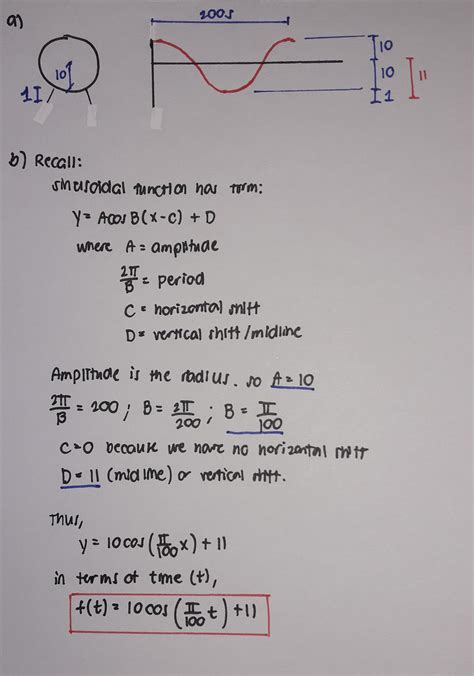 a)
200s
10
1
10
10
11
1
b) Recall:
sinusoidal function has form:
Y = AcosB(x-c) + D
where A = amplitude
2π/B = period
C = horizontal shift
D = vertical shift/midline
Amplitude is the radius. so A = 10
2π/B = 200 ; B = 2π/200 ; B = π/100
C=0 because we have no horizontal shift
D = 11 (midline) or vertical shift.
Thus,
y = 10cos(π/100 x) + 11
in terms of time (t),
f(t) = 10cos(π/100 t) + 11